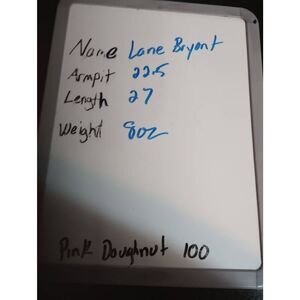 Name Lane Bryant
Armpit 22.5
Length 27
Weight 8oz
Pink Doughnut 100